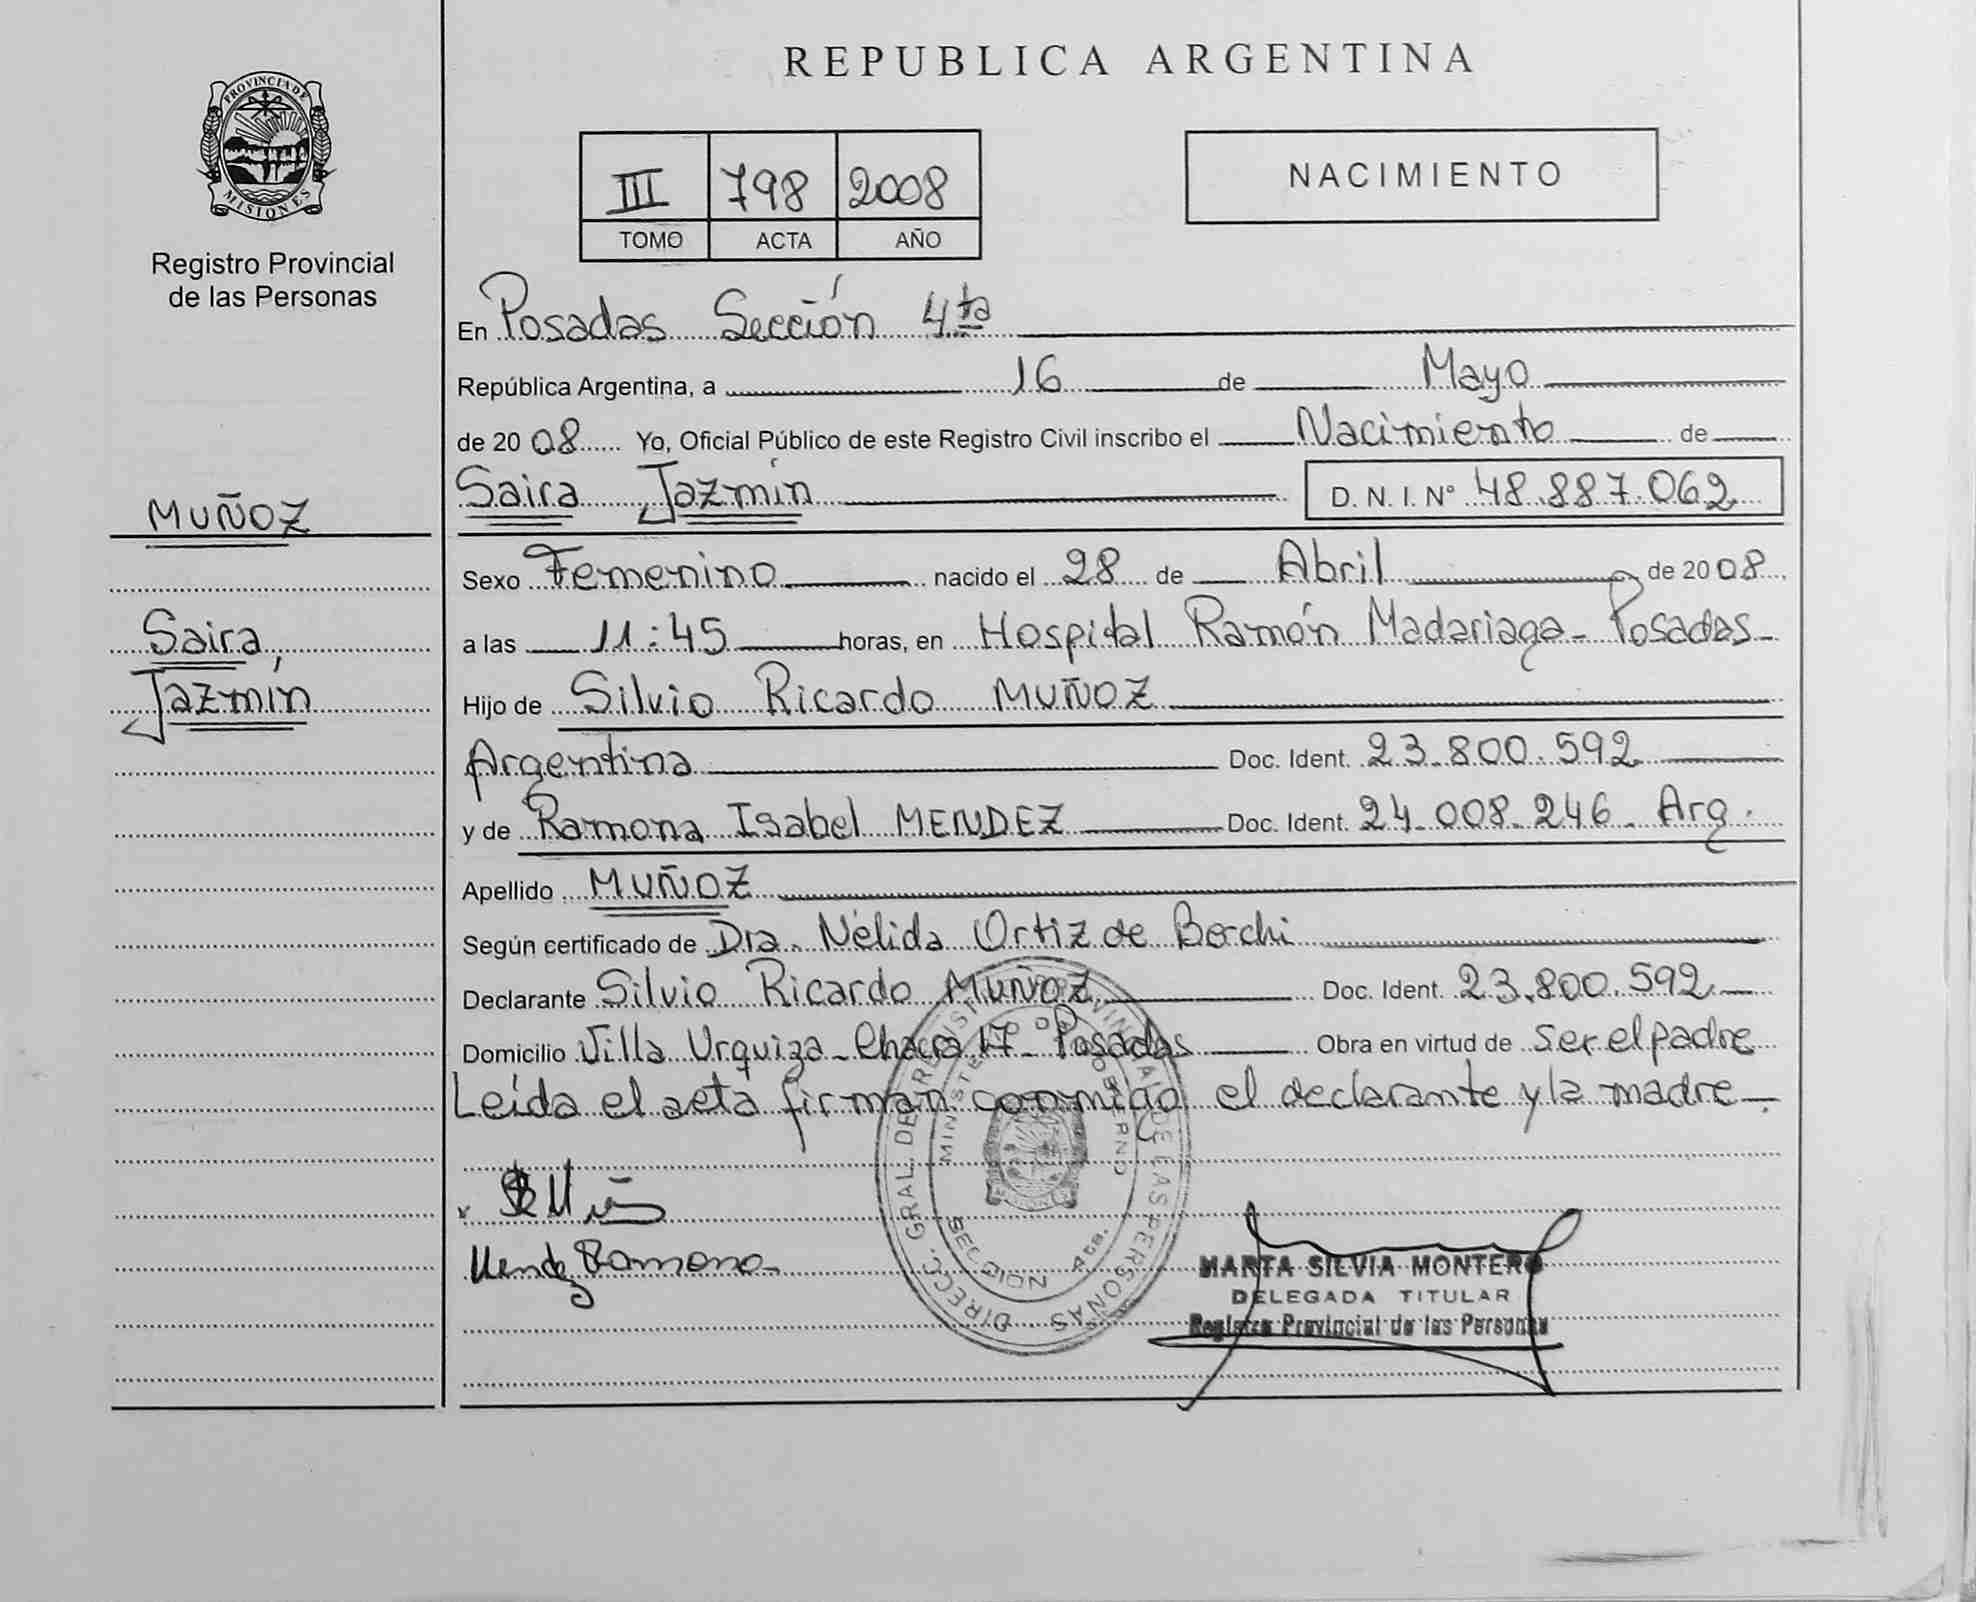 REPUBLICA ARGENTINA
PROVINCIA DE
MISIONES
Registro Provincial
de las Personas
III 798 2008
TOMO ACTA AÑO
NACIMIENTO
En Posadas Sección 4ta
República Argentina, a 16 de Mayo
de 2008 Yo, Oficial Público de este Registro Civil inscribo el Nacimiento de
Saira Jazmín D. N. I. N° 48.887.062
MUÑOZ
Saira,
Jazmín
Sexo Femenino nacido el 28 de Abril de 2008
a las 11:45 horas, en Hospital Ramón Madariaga - Posadas -
Hijo de Silvio Ricardo MUÑOZ
Argentina Doc. Ident. 23.800.592
y de Ramona Isabel MENDEZ Doc. Ident. 24.008.246 - Arg.
Apellido MUÑOZ
Según certificado de Dra. Nélida Ortiz de Berchi
Declarante Silvio Ricardo MUÑOZ Doc. Ident. 23.800.592
Domicilio Villa Urquiza - Chacra 17 - Posadas Obra en virtud de Ser el padre
Leída el acta firman conmigo el declarante y la madre -
Mendez Ramona
DIRECC. GRAL. DEL REGISTRO PROVINCIAL DE LAS PERSONAS
MINISTERIO DE GOBIERNO
SECCION 4ta.
MARTA SILVIA MONTERO
DELEGADA TITULAR
Registro Provincial de las Personas